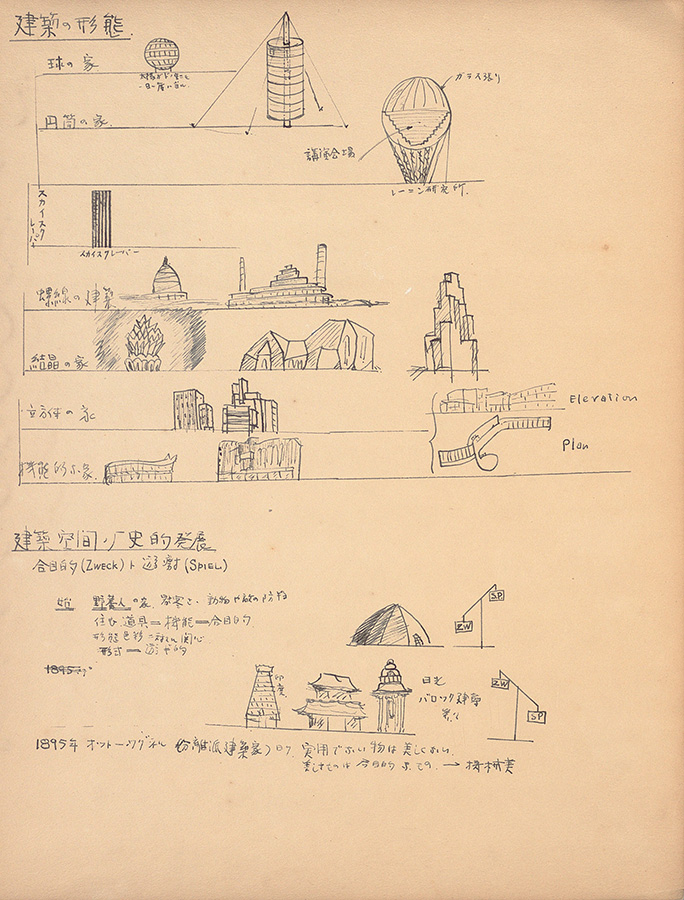 建築の形態
球の家
円筒の家
ガラス張り
講堂会場
レーニン研究所.
スカイスクレーパー
スカイスクレーパー
螺線の建築
結晶の家
立方体の家
Elevation
Plan
機能的な家
建築空間ノ厂史的発展
合目的 (ZWECK) ト 遊戯 (SPIEL)
野蛮人の家 動物や敵の防禦
住む道具=機能=合目的
形態色彩 関心
形式
SP
ZW
1895
印度
日光
バロック建築
ZW
SP
1895年 オットーワグネル (分離派建築家) 曰ク 実用でない物は美しくない.
合目的 → 機械美